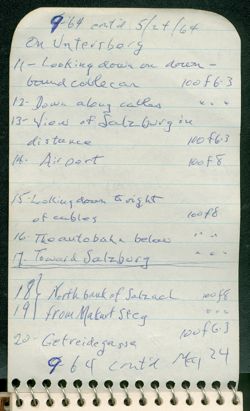 9-64 cont'd 5/24/64
On Untersberg
11- Looking down on down-
bound cablecar 100 f 6.3
12- Down along cables " " "
13- View of Salzburg in
distance 100 f 6.3
14- Airport 100 f 8
15- Looking down to right
of cables 100 f 8
16- The autobahn below " "
17- Toward Salzburg " " "
18 } North bank of Salzach 100 f 8
19 } from Makart Steg " " "
20- Getreidegasse 100 f 6.3
9-64 cont'd May 24